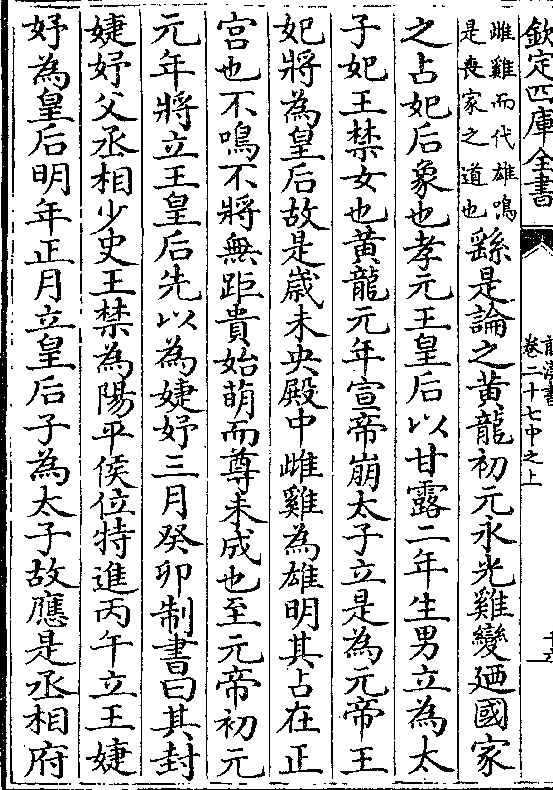 欽定四庫全書
前漢書
卷二十七中之上
雌雞而代雄鳴
是喪家之道也
繇是論之黃龍初元永光雞變廼國家
之占妃后象也孝元王皇后以甘露二年生男立為太
子妃王禁女也黃龍元年宣帝崩太子立是為元帝王
妃將為皇后故是歲未央殿中雌雞為雄明其占在正
宮也不鳴不將無距貴始萌而尊未成也至元帝初元
元年將立王皇后先以為婕妤三月癸卯制書曰其封
婕妤父丞相少史王禁為陽平侯位特進丙午立王婕
妤為皇后明年正月立皇后子為太子故應是丞相府